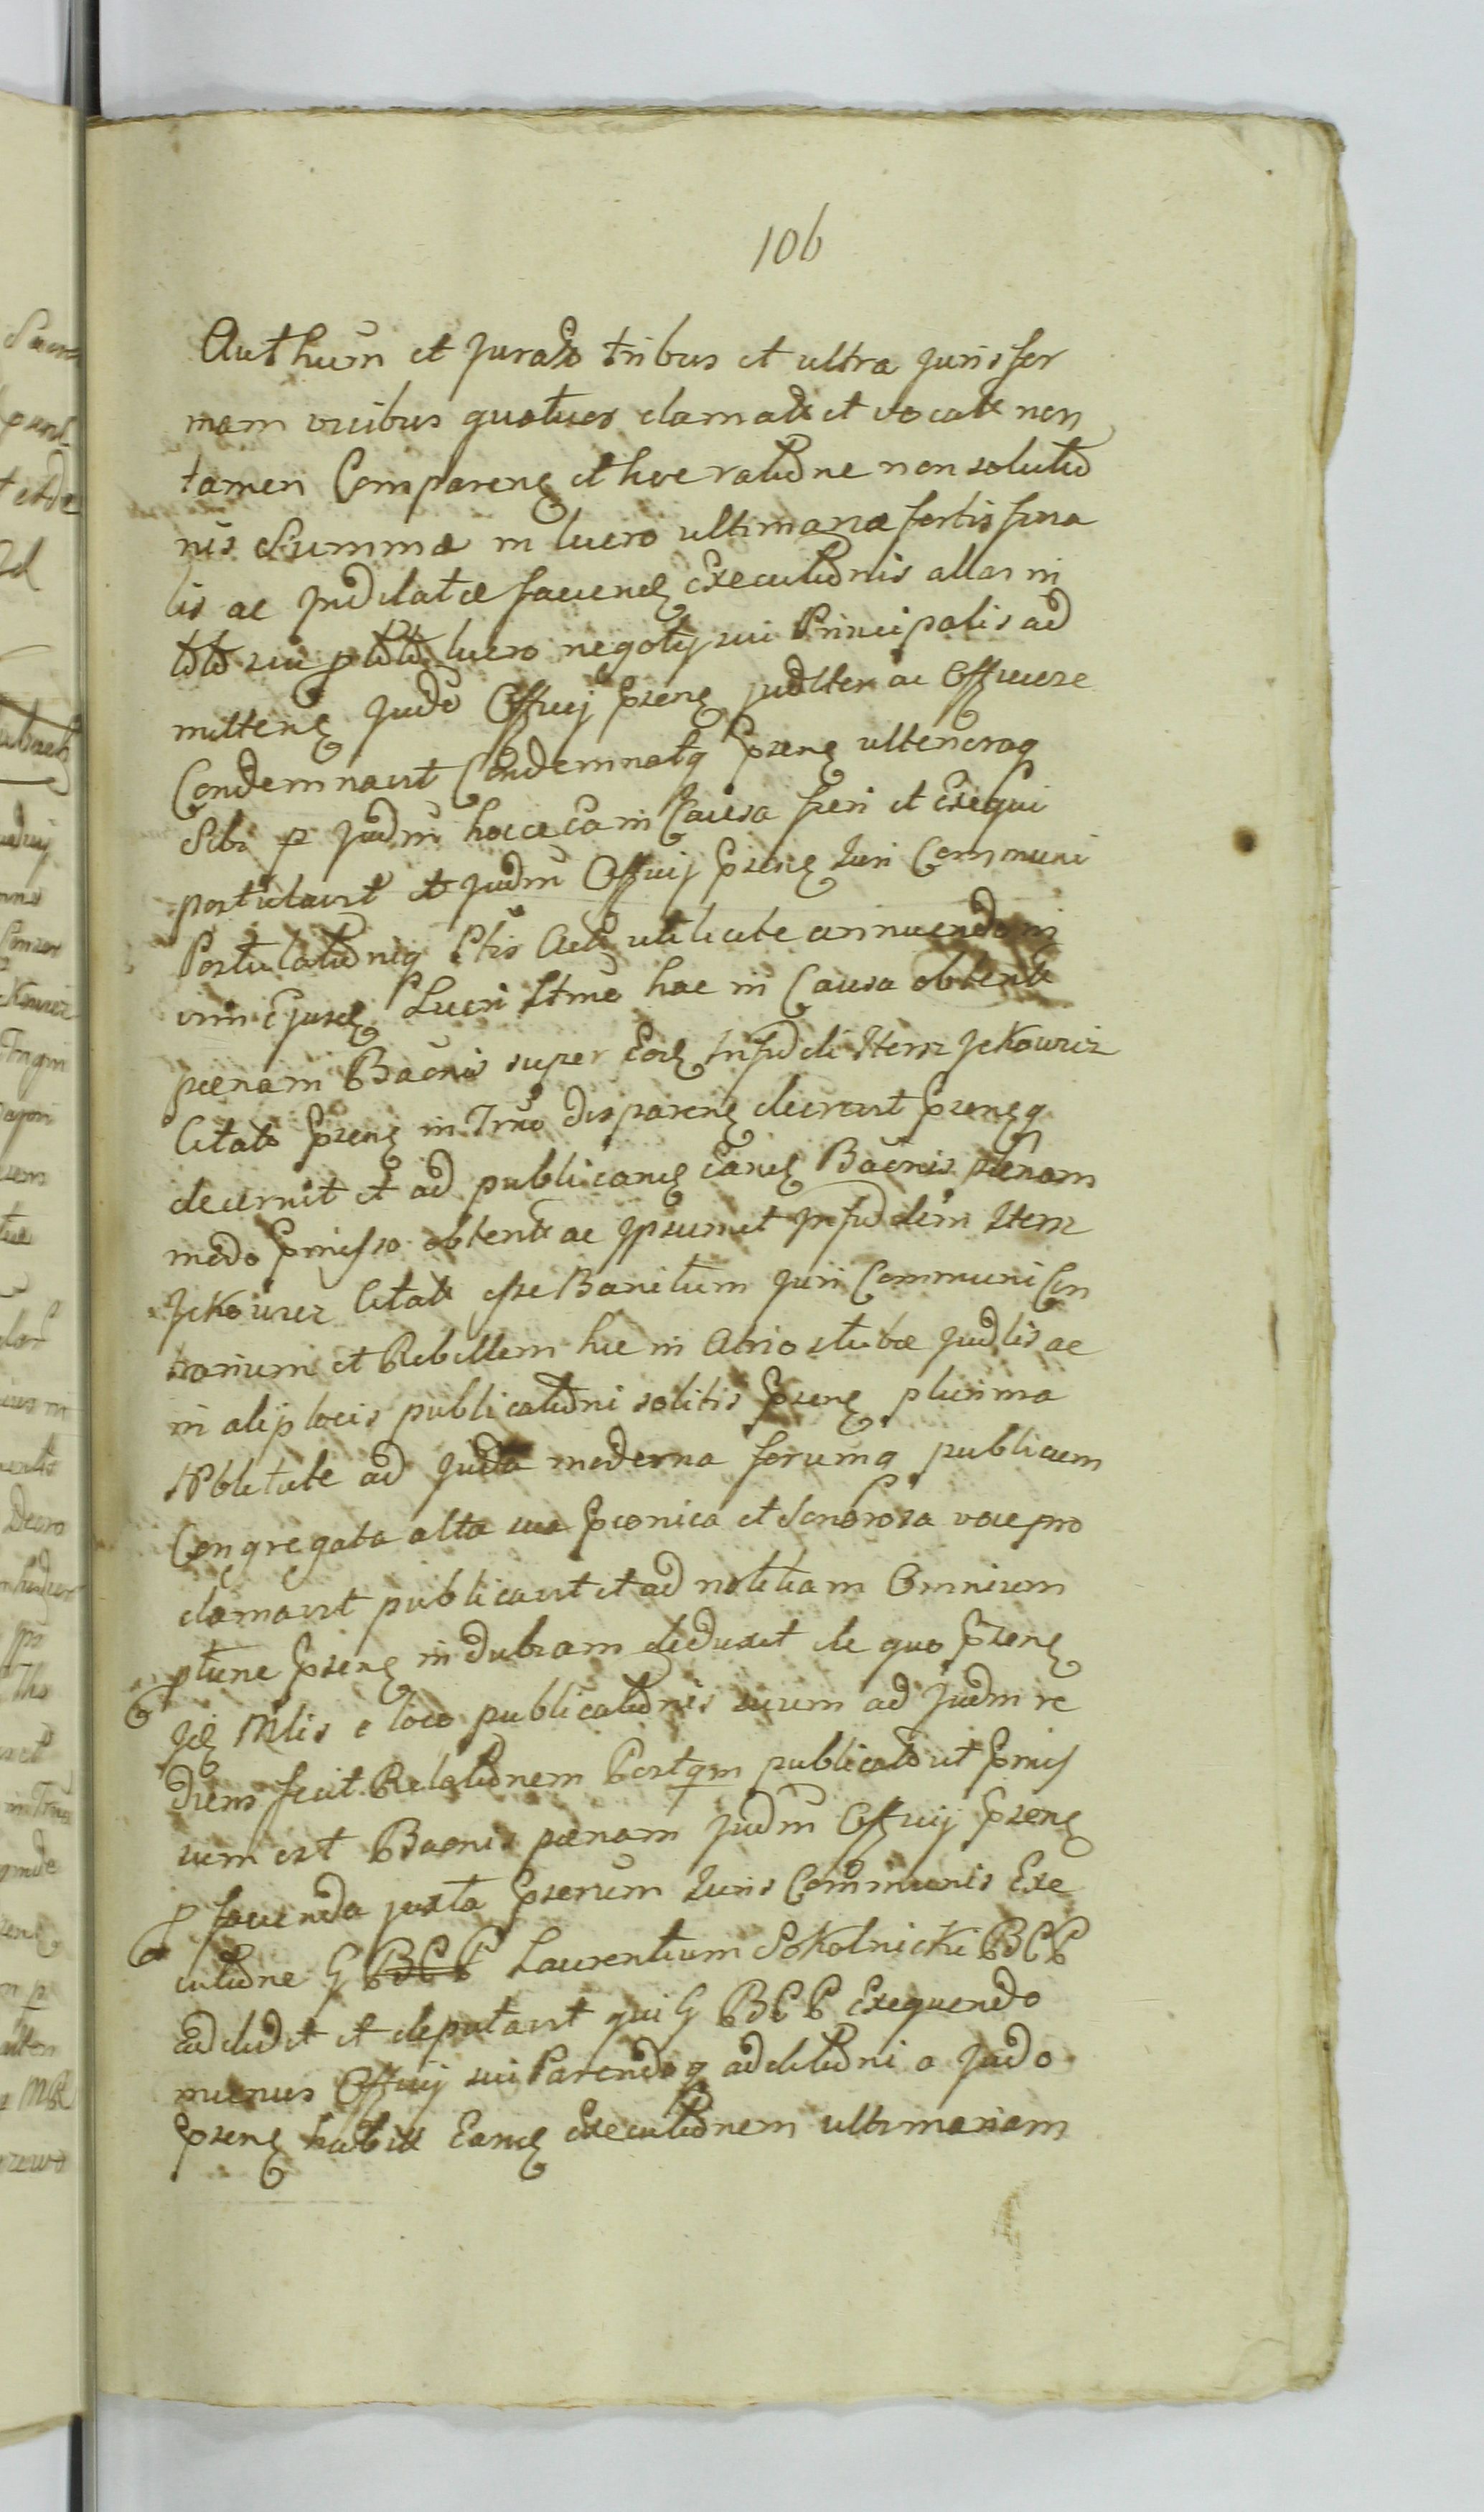 106
Authum et Jurato tribus et ultra Juris for
mam vicibus quatuor clamato et vocato non
tamen Comparen et hoc ratione non solutio
nis Summæ in lucro ultimariæ sortis fina
lis ac Judicatæ faciend Executionis allas in
sui lucro negotij sui Principalis ad
mitten Judo Officij Pnen Judlter ac Officiose
Condemnavit Condemnatq Pnen ulteriorq
Sibi p Judm hocce Ea in Causa fieri et Exequi
postulavit et Judm Officij Pnen Juri Communi
Postulationiq Ptis Act utilicite annuendo in
vim Ejusd Lucri Ittme hac in Causa obtent
pænam Baonis super Eod Infideli Hersz Jekowicz
Citato Pnen in Trno disparen decrevit Pnenq
decernit et ad publicand Eand Baonis pænam
modo Pmisso obtent ac Ipsummet Infidelem Hersz
Jekowicz Citato esse Banitum Juri Communi Con
trarium et Rebellem hic in Atrio stubæ Judlis ac
in alijs locis publicationi solitis Pnen plurima
Nblitate ad Judia moderna forumq publicum
Congregata alta sua Pconica et Sonorosa voce pro
clamavit publicavit et ad notitiam Omnium
ptune Pnen indubiam deduxit de quo Pnen
Jd Mlis e loco publicationis suum ad Judm re
diens fecit Relationem Postqm publicato ut Pmis
sum est Baonis pænam Judm Officij Pnen
p facienda juxta Pscrum Juris Communis Exe
cutione G BCP Laurentium Sokolnicki BCP
addidit et deputavit qui G BCP Exequendo
munus Officij sui Parendoq additioni a Judo
Pnen habit Eand Executionem ultimariam